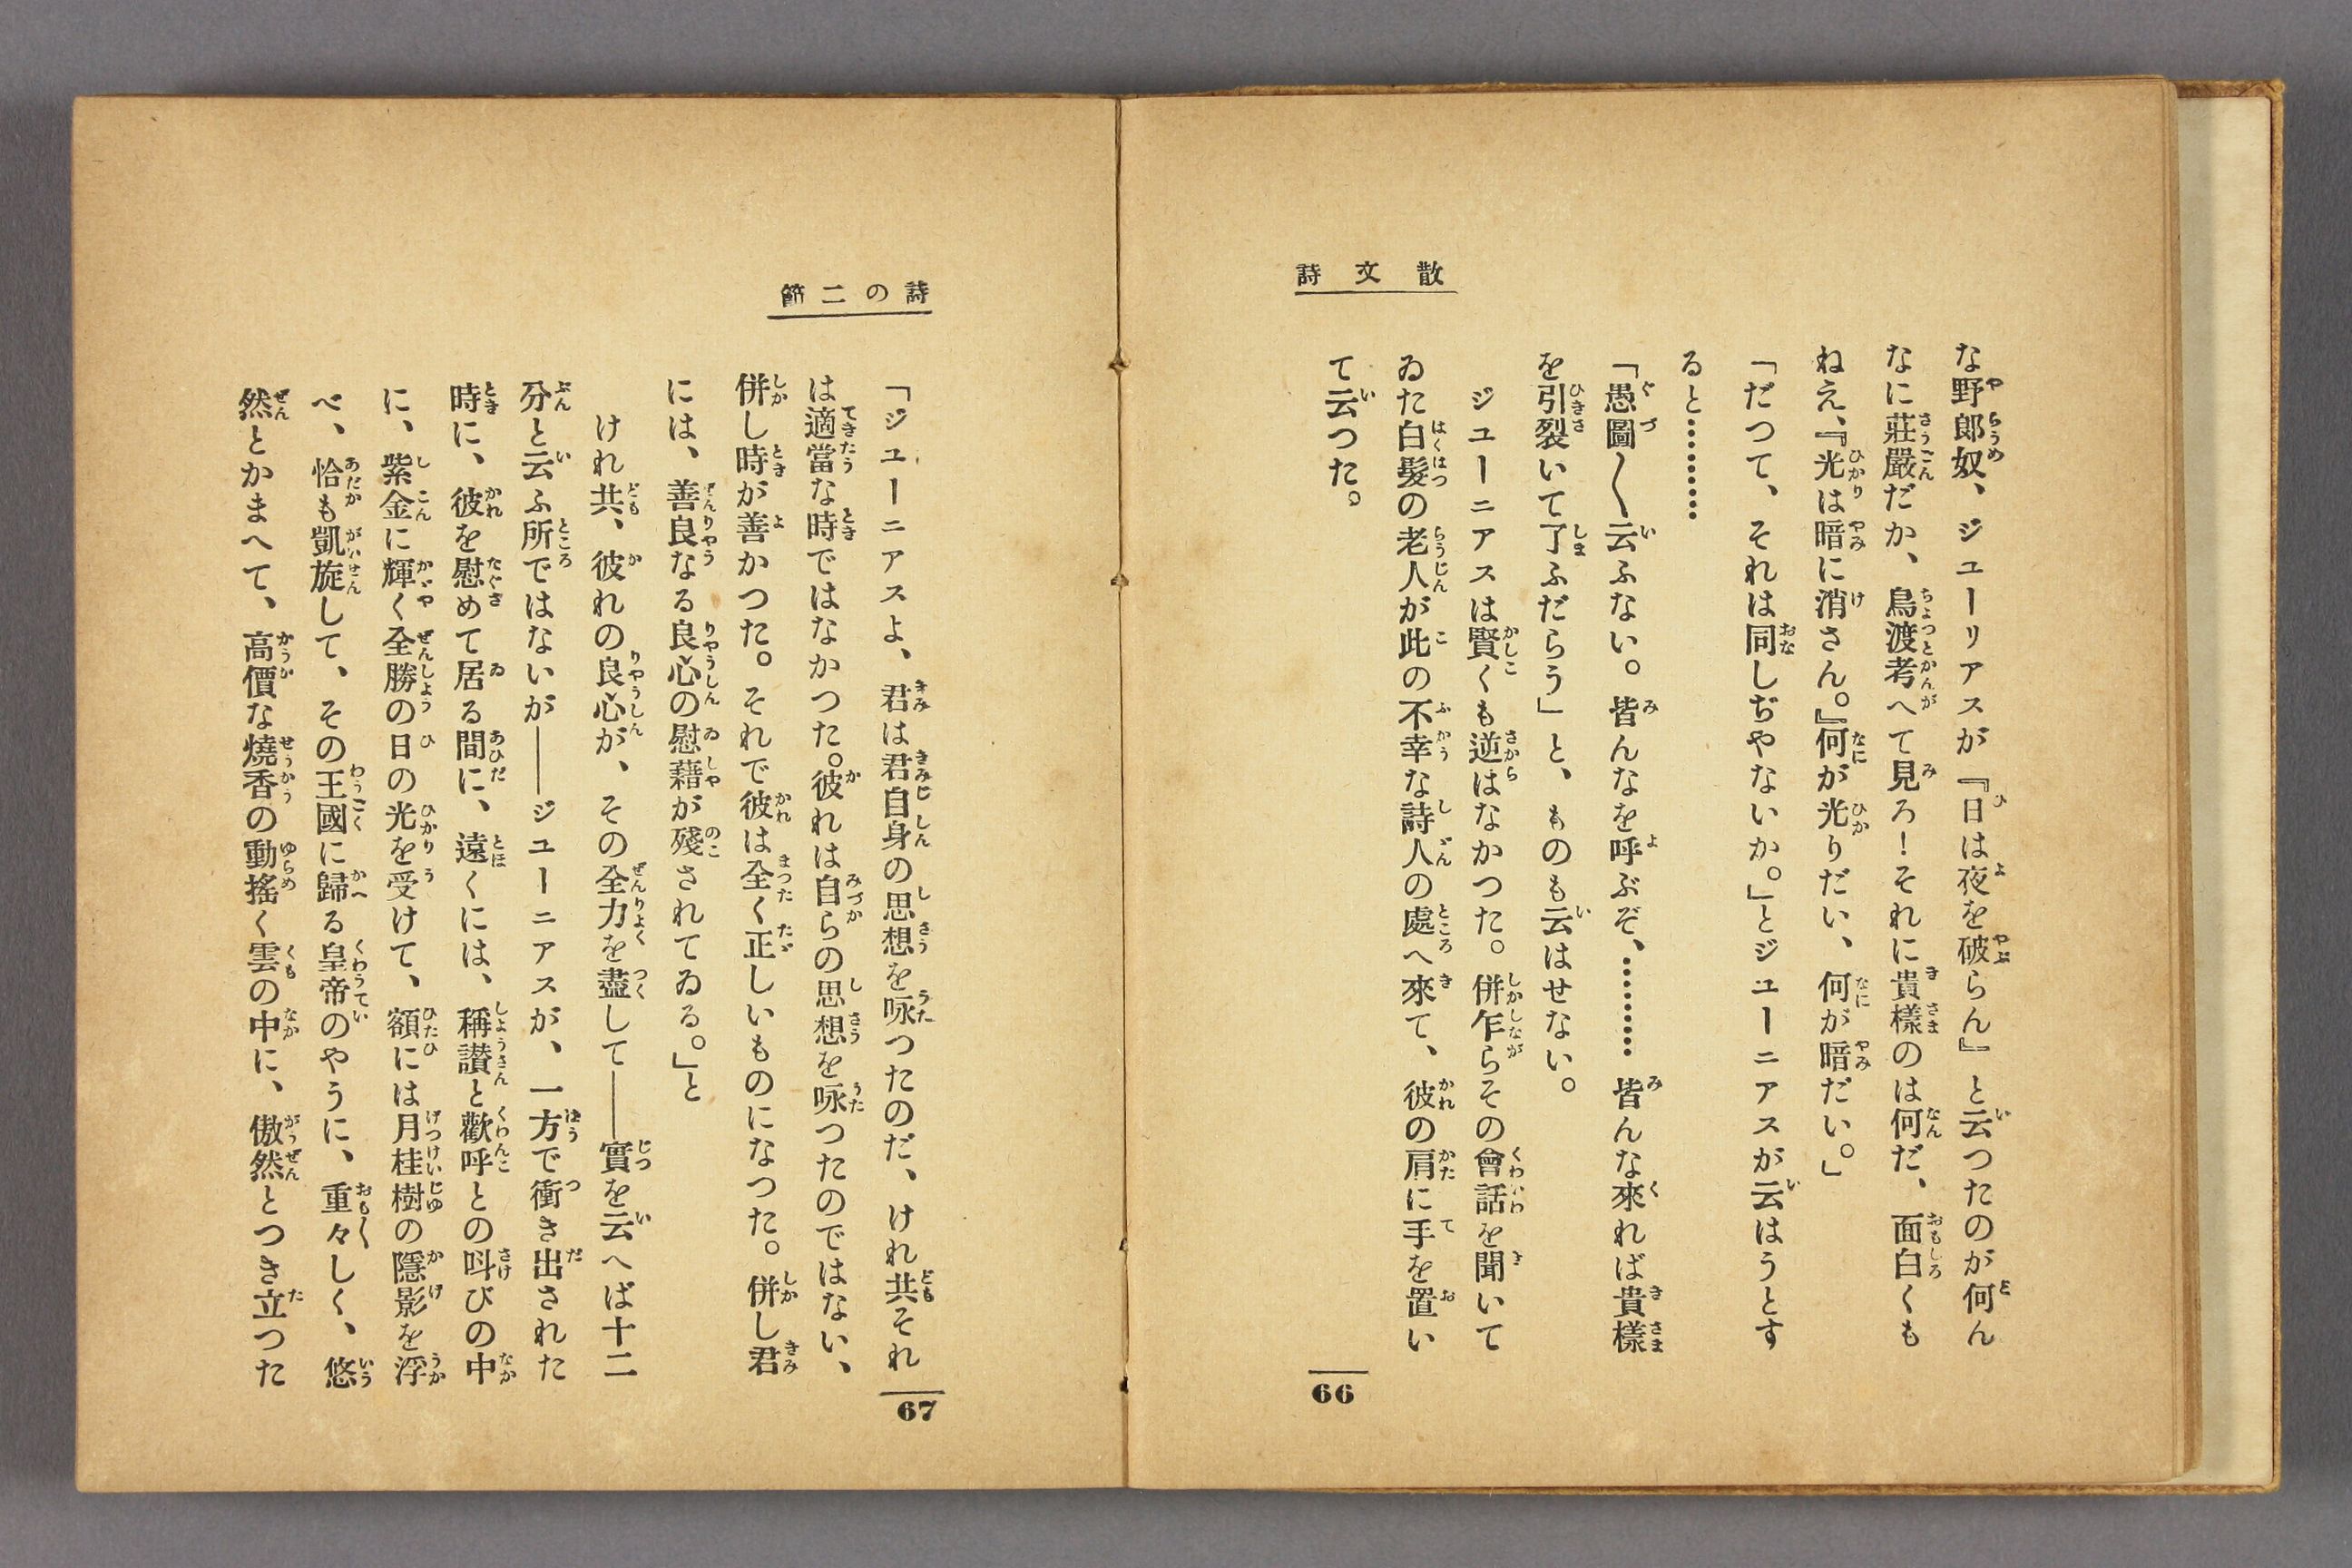 散文詩
な野郎奴、ジユーリアスが『日は夜を破らん』と云つたのが何ん
なに莊嚴だか、鳥渡考へて見ろ！それに貴樣のは何だ、面白くも
ねえ、『光は暗に消さん。』何が光りだい、何が暗だい。」
「だつて、それは同しぢやないか。」とジユーニアスが云はうとす
ると………
「愚圖〱云ふない。皆んなを呼ぶぞ、………皆んな來れば貴樣
を引裂いて了ふだらう」と、ものも云はせない。
ジユーニアスは賢くも逆はなかつた。併乍らその會話を聞いて
ゐた白髮の老人が此の不幸な詩人の處へ來て、彼の肩に手を置い
て云つた。
66
詩の二節
「ジユーニアスよ、君は君自身の思想を咏つたのだ、けれ共それ
は適當な時ではなかつた。彼れは自らの思想を咏つたのではない、
併し時が善かつた。それで彼は全く正しいものになつた。併し君
には、善良なる良心の慰藉が殘されてゐる。」と
けれ共、彼れの良心が、その全力を盡して――實を云へば十二
分と云ふ所ではないが――ジユーニアスが、一方で衝き出された
時に、彼を慰めて居る間に、遠くには、稱讃と歡呼との呌びの中
に、紫金に輝く全勝の日の光を受けて、額には月桂樹の隱影を浮
べ、恰も凱旋して、その王國に歸る皇帝のやうに、重々しく、悠
然とかまへて、高價な燒香の動搖く雲の中に、傲然とつき立つた
67